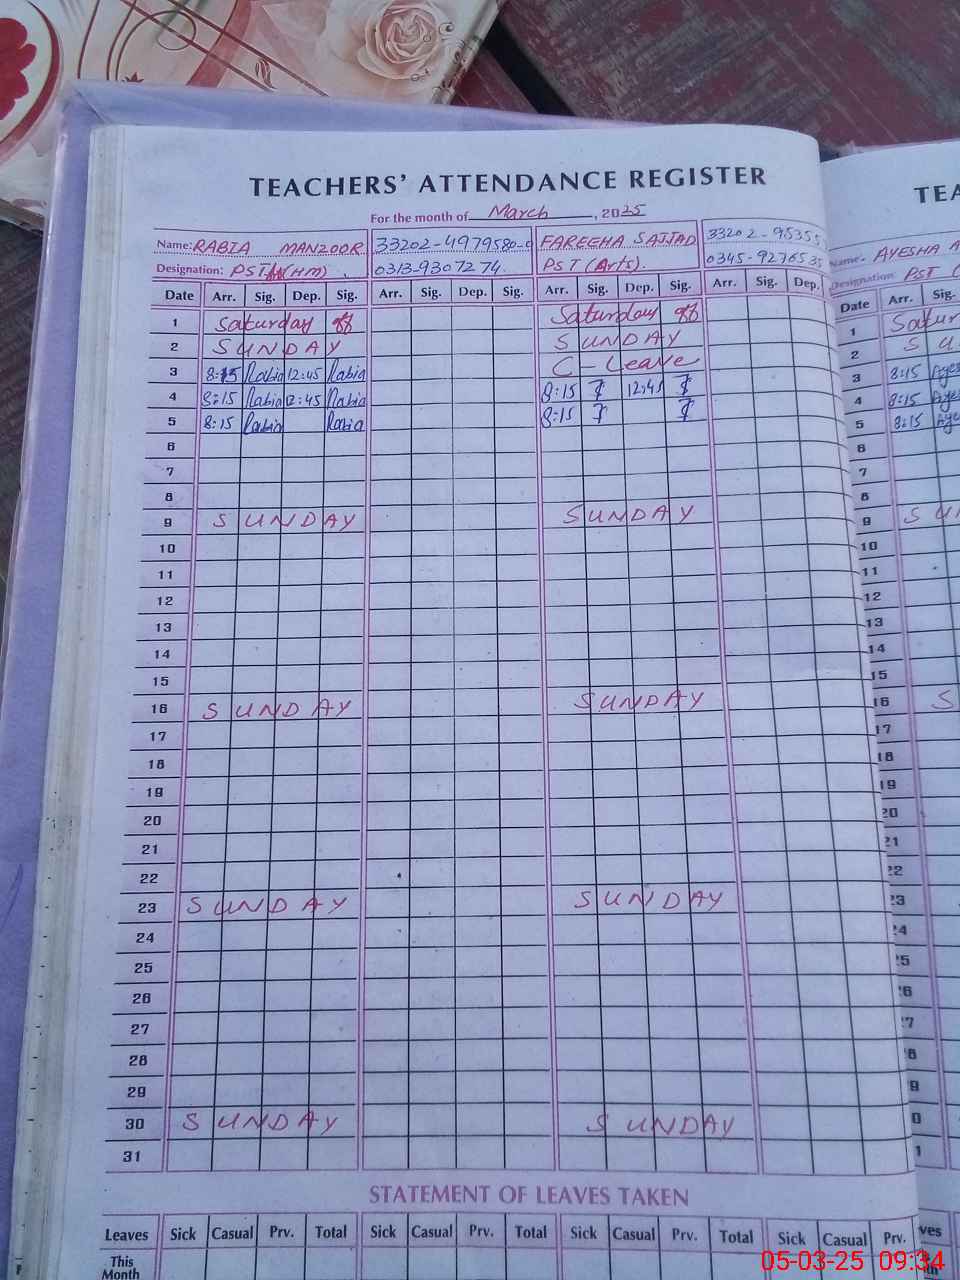 TEACHERS' ATTENDANCE REGISTER
For the month of March, 2025
Name: RABIA MANZOOR 33202-4979580- FAREEHA SAJJAD 33202-95355
Designation: PST (HM) 0313-9307274 PST (Arts). 0345-9276535
Date Arr. Sig. Dep. Sig. Arr. Sig. Dep. Sig. Arr. Sig. Dep. Sig. Arr. Sig. Dep.
1 Saturday off Saturday off
2 SUNDAY SUNDAY
3 8:15 Rabia 12:45 Rabia C-Leave
4 8:15 Rabia 12:45 Rabia 8:15 12:45
5 8:15 Rabia Rabia 8:15
6
7
8
9 SUNDAY SUNDAY
10
11
12
13
14
15
16 SUNDAY SUNDAY
17
18
19
20
21
22
23 SUNDAY SUNDAY
24
25
26
27
28
29
30 SUNDAY SUNDAY
31
STATEMENT OF LEAVES TAKEN
Leaves Sick Casual Prv. Total Sick Casual Prv. Total Sick Casual Prv. Total Sick Casual Prv.
This
Month
TEA
Name: AYESHA A
Designation: PST (
Date Arr. Sig.
1 Satur
2 S U
3 8:15 Ayes
4 8:15 Aye
5 8:15 Aye
6
7
8
9 S U
10
11
12
13
14
15
16 S
17
18
19
20
21
22
23
24
25
26
27
28
29
30
31
ves
05-03-25 09:34